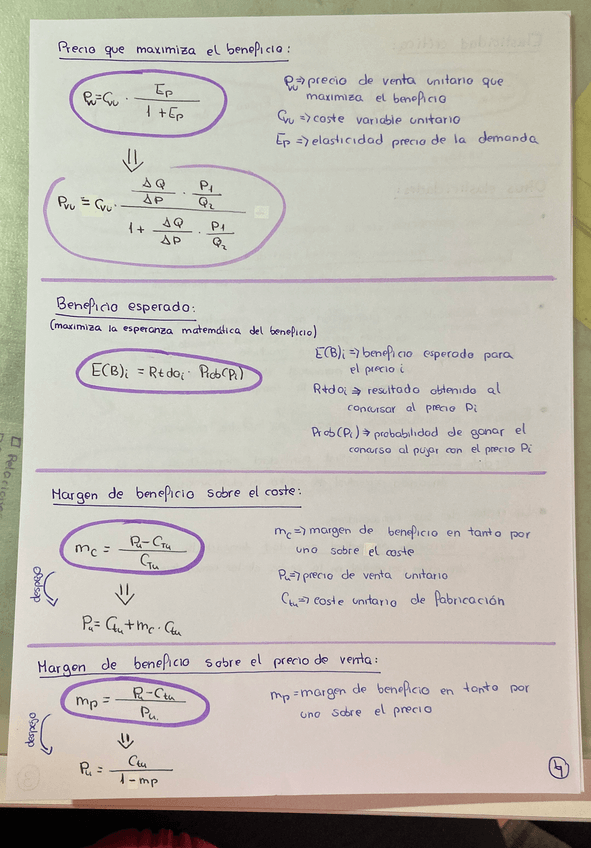 Precio que maximiza el beneficio:
Pvu = Cvu · Ep / (1 + Ep)
Pvu => precio de venta unitario que
maximiza el beneficio
Cvu => coste variable unitario
Ep => elasticidad precio de la demanda
Pvu = Cvu · (ΔQ/ΔP · P1/Q2) / (1 + ΔQ/ΔP · P1/Q2)
Beneficio esperado:
(maximiza la esperanza matemática del beneficio)
E(B)i = Rtdoi · Prob(Pi)
E(B)i => beneficio esperado para
el precio i
Rtdoi => resultado obtenido al
concursar al precio Pi
Prob(Pi) => probabilidad de ganar el
concurso al pujar con el precio Pi
Margen de beneficio sobre el coste:
mc = (Pu - CTu) / CTu
mc => margen de beneficio en tanto por
uno sobre el coste
Pu => precio de venta unitario
Ctu => coste unitario de fabricación
despejo
Pu = Ctu + mc · Ctu
Margen de beneficio sobre el precio de venta:
mp = (Pu - Ctu) / Pu
mp = margen de beneficio en tanto por
uno sobre el precio
despejo
Pu = Ctu / (1 - mp)